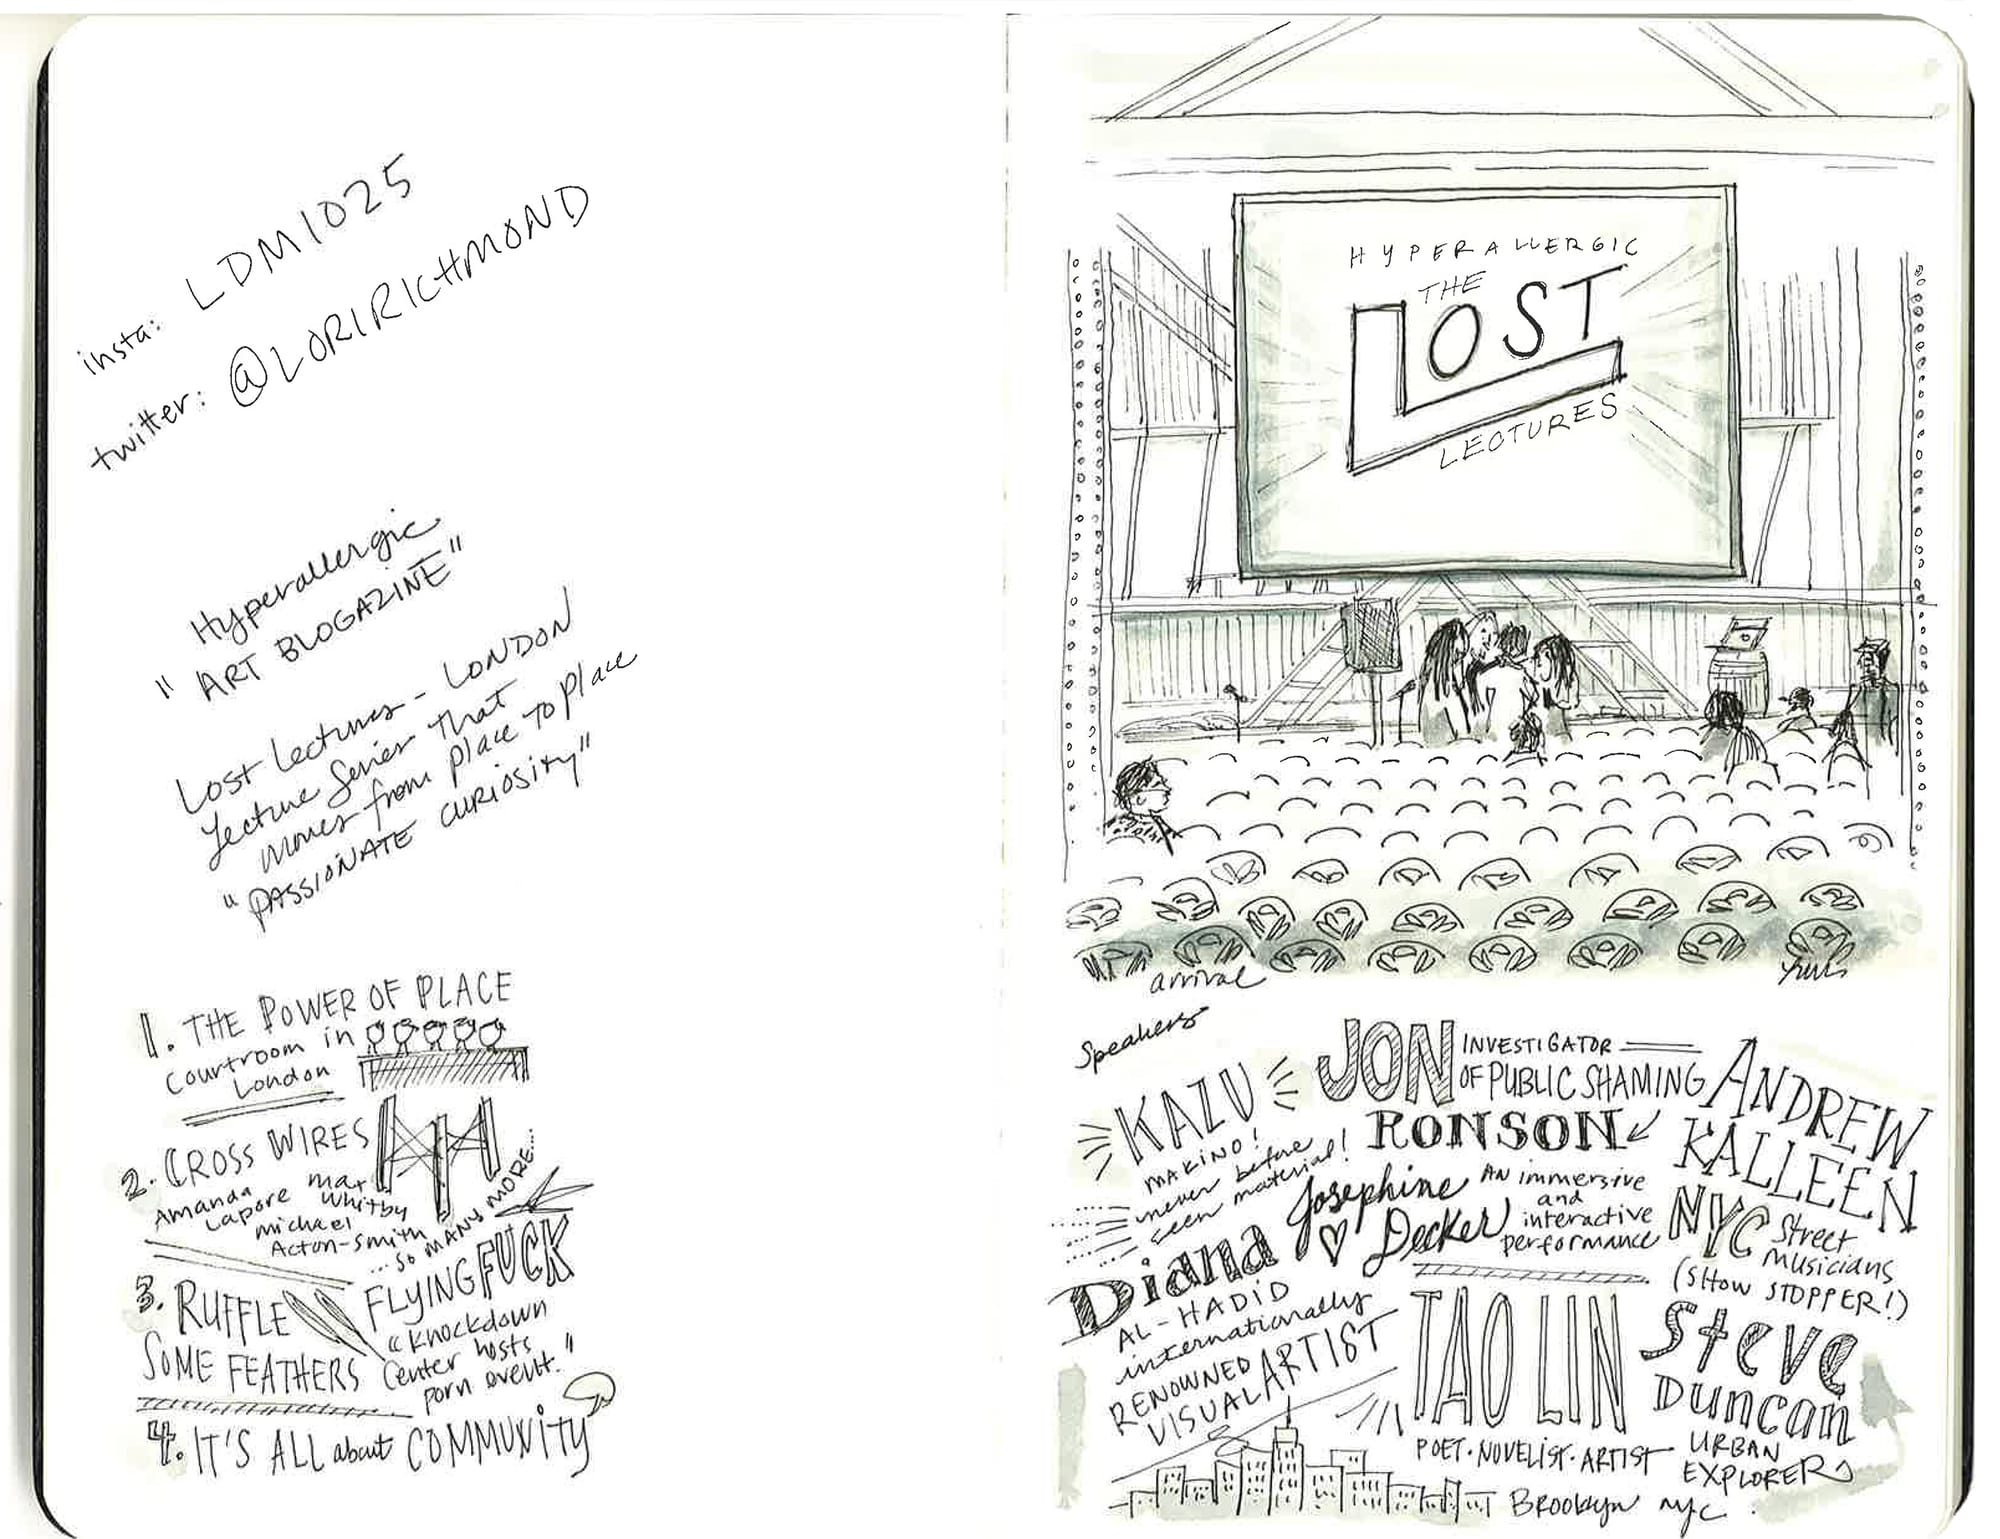 insta: LDM1025
twitter: @LORIRICHMOND
Hyperallergic
"ART BLOGAZINE"
Lost Lectures - LONDON
Lecture Series That
moves from place to place
"PASSIONATE curiosity"
1. THE POWER OF PLACE
Courtroom in
London
2. CROSS WIRES
Amanda
Lapore
Max
Whitby
Michael
Acton-Smith
...SO MANY MORE...
3. RUFFLE
SOME FEATHERS
FLYING FUCK
"Knockdown
Center hosts
porn event."
4. IT'S ALL about COMMUNITY
HYPERALLERGIC
THE
LOST
LECTURES
arrival
Speakers
KAZU
MAKINO!
never before
seen material!
JON
RONSON
INVESTIGATOR
OF PUBLIC SHAMING
ANDREW
KALLEEN
NYC Street
musicians
(SHOW STOPPER!)
Josephine
Decker
AN immersive
and
interactive
performance
Diana
AL-HADID
internationally
RENOWNED
VISUAL ARTIST
TAO LIN
POET·NOVELIST·ARTIST
Steve
Duncan
URBAN
EXPLORER
Brooklyn nyc